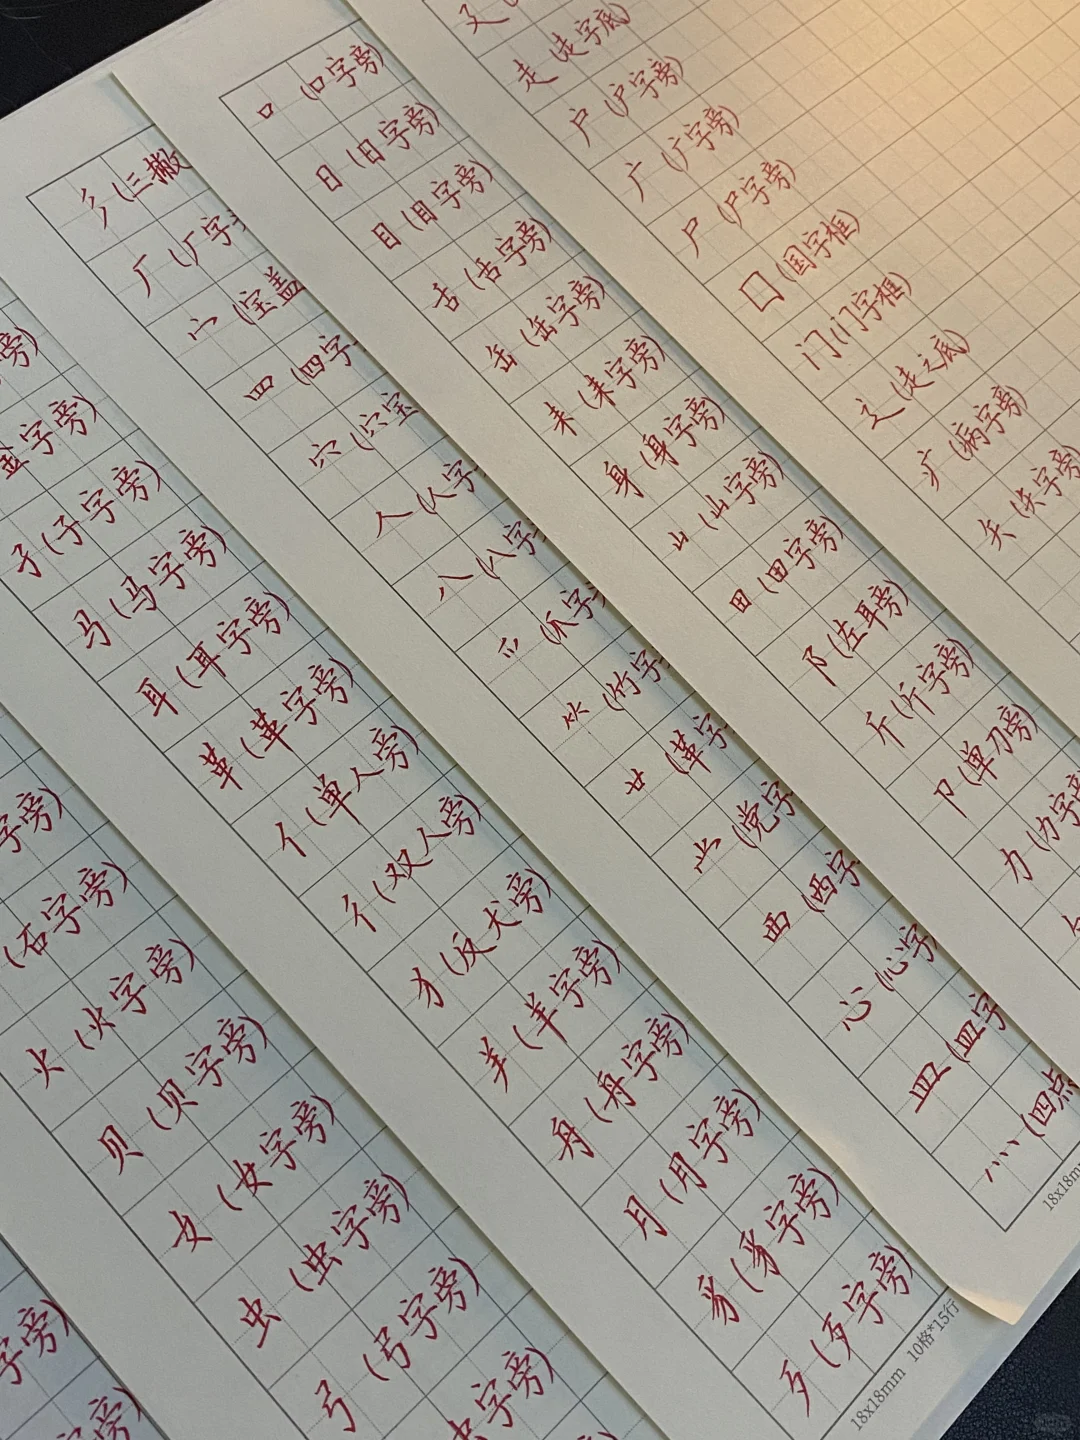 走 (走字底)
户 (户字旁)
广 (广字旁)
尸 (尸字旁)
囗 (国字框)
门 (门字框)
辶 (走之底)
疒 (病字旁)
矢 (矢字旁)
口 (口字旁)
日 (日字旁)
目 (目字旁)
舌 (舌字旁)
缶 (缶字旁)
耒 (耒字旁)
身 (身字旁)
山 (山字旁)
田 (田字旁)
阝 (左耳旁)
斤 (斤字旁)
卩 (单刀旁)
力 (力字旁
彡 (三撇
厂 (厂字
宀 (宝盖
四 (四字
穴 (穴宝
人 (人字
八 (八字
爫 (爪字
⺮ (竹字
廿 (革字
(党字
西 (西字
心 (心字
皿 (皿字
灬 (四点
18x18mm
字旁)
金字旁)
孑 (子字旁)
马 (马字旁)
耳 (耳字旁)
革 (革字旁)
亻 (单人旁)
彳 (双人旁)
犭 (反犬旁)
羊 (羊字旁)
舟 (舟字旁)
月 (月字旁)
豸 (豸字旁)
歹 (歹字旁)
18x18mm 10格*15行
字旁)
(石字旁)
火 (火字旁)
贝 (贝字旁)
女 (女字旁)
虫 (虫字旁)
弓 (弓字旁)
字旁)
字旁)